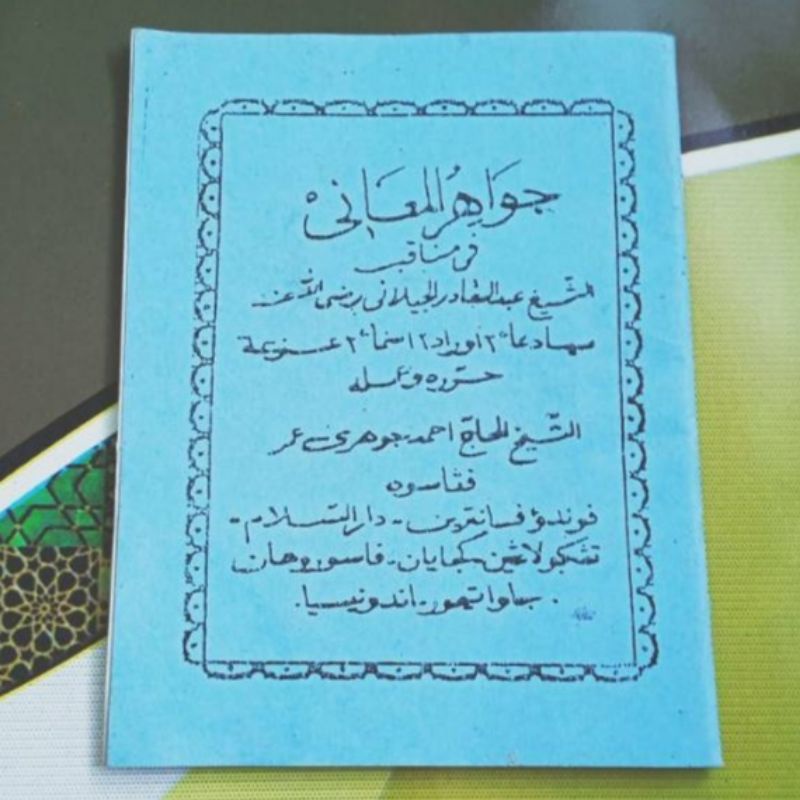 جَوَاهِرُ المَعَانِى
فى مناقب
الشّيخ عبد القادر الجيلانى رضى الله عنه
دعا٢ اوراد٢ اسما٢ عزيمة
حرّره وعمله
الشّيخ الحاج احمد جوهرى عمر
فڠاسوه
فوندؤ فسانترين - دار السّلام -
تڠڮولاڠين - كجايان - فاسوروهان
جاوا تيمور - اندونيسيا .